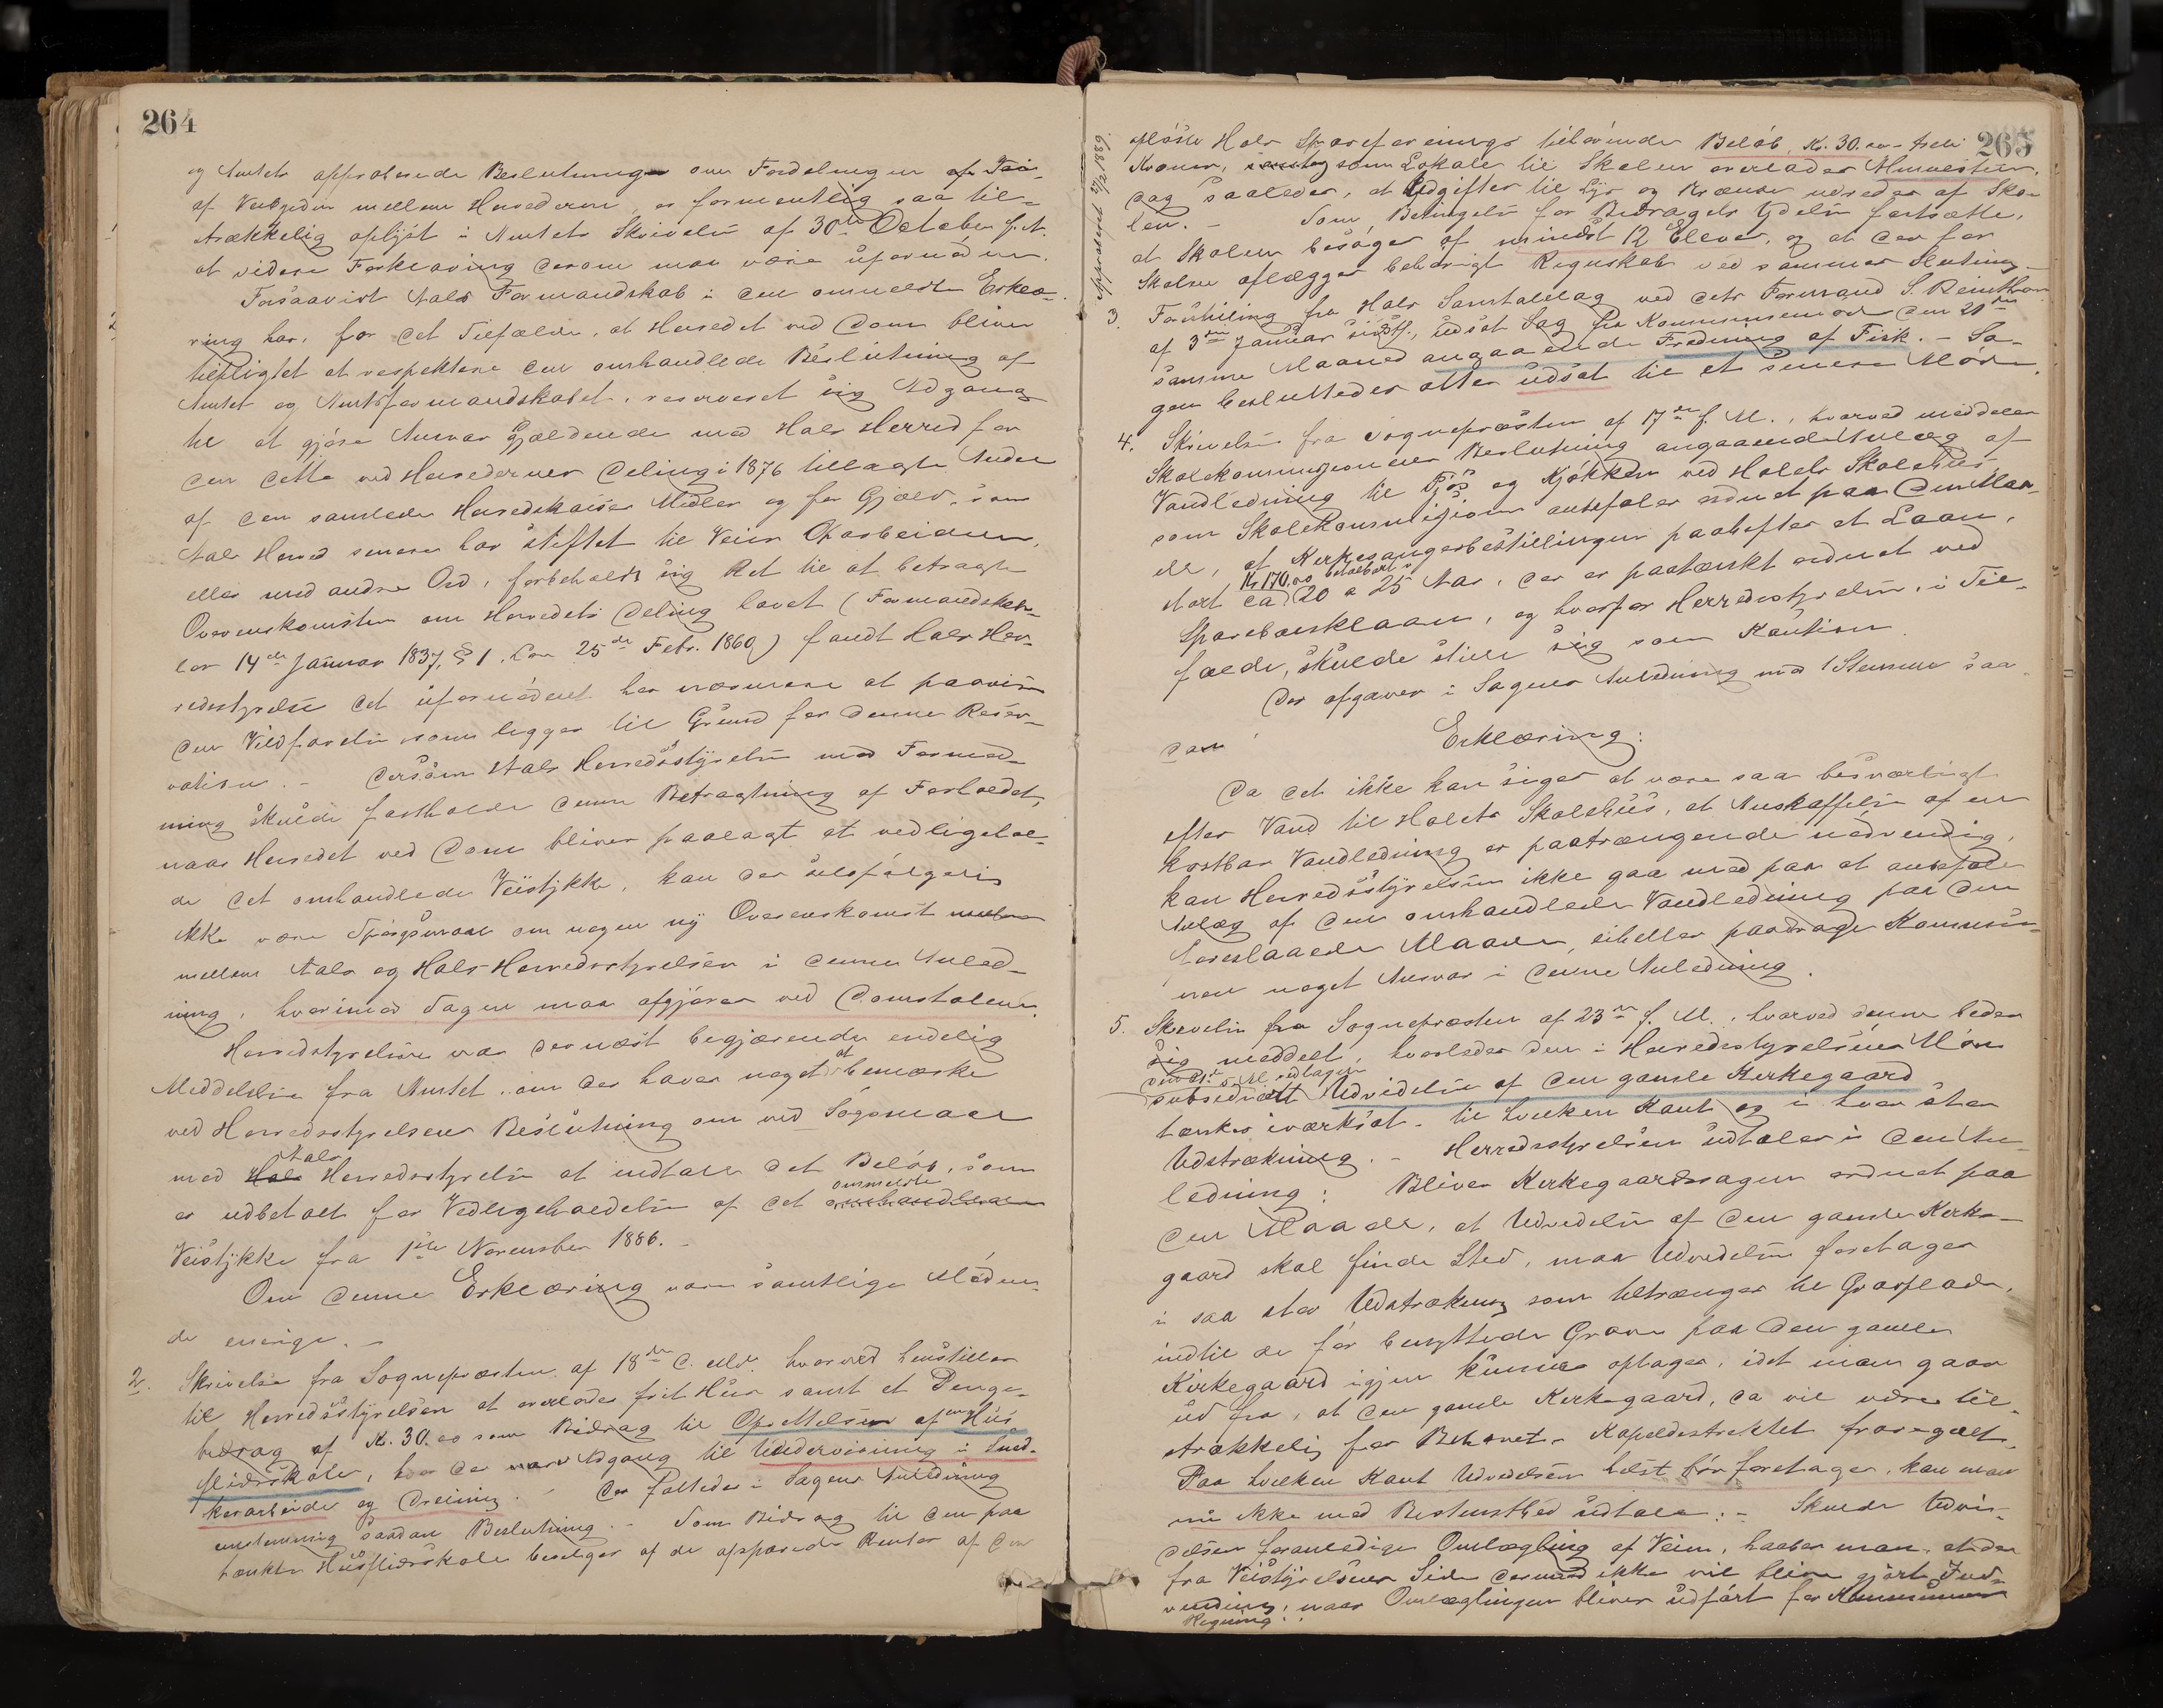 264
og Amtets approberede Beslutninger om Fordelingen af
af Veibyrden mellem Herederne, er formentlig saa til-
strækkelig oplyst i Amtets Skrivelse af 30te October f. A.
at videre Forklaring derom maa være ufornøden.
Forsaavidt Aals Formandskab i den anmeldte Erklæ-
ring har, for det Tilfælde, at Heredet ved Dom bliver
tilpligtet at respektere den omhandlede Beslutning af
Amtet og Amtsformandskabet, reserveret sig Adgang
til at gjøre Ansvar gjældende mod Hols Herred for
den dette ved Heredernes Deling i 1876 tillagte Andel
af den samlede Heredskasses Midler og for Gjæld, som
Aals Hered senere har stiftet til Veies Oparbeidelse,
eller med andre Ord, forbeholdt sig Ret til at betragte
Overenskomsten om Heredets Deling lovet (Formandskabs-
lov 14de Januar 1837, § 1, Lov 25de Febr. 1860) fandt Hols Her-
redsstyrelse det ufornødent her nærmere at paavise
den Vildfarelse som ligger til Grund for denne Reser-
vation. - Dersom Aals Herredsstyrelse mod Formod-
ning skulde fastholde denne Betragtning af Forholdet,
naar Heredet ved Dom bliver paalagt at vedligehol-
de det omhandlede Veistykke, kan der selvfølgelig
ikke være Spørgsmaal om nogen ny Overenskomst
mellem Aals og Hols Herredsstyrelser i denne Anled-
ning, hvorimod Sagen maa afgjøres ved Domstolene.
Herredsstyrelsen var dernæst begjærende endelig
Meddelelse fra Amtet, om der haves noget at bemærke
ved Herredsstyrelsens Beslutning om ved Søgsmaal
Aals
mod Hols Herredsstyrelse at indtale det Beløb, som
ommeldte
er udbetalt for Vedligeholdelse af det omhandlede
Veistykke fra 1ste November 1886. -
Om denne Erklæring vare samtlige Møden-
de enige. -
2. Skrivelse fra Sognepræsten af 18de d. Md. hvorved henstilles
til Herredsstyrelsen at overlade frit Huus samt et Penge-
bidrag af Kr. 30.00 som Bidrag til Oprettelsen af en Hus-
flidsskole, hvor der var Adgang til Undervisning i Sned-
kerarbeide og Dreining. - Der fattedes i Sagens Anledning
enstemmig saadan Beslutning. - Som Bidrag til den paa-
tænkte Husflidsskole bevilges af de opsparede Renter af den
265
opløste Hols Spareforenings tilhørende Beløb, Kr. 30.00 - tredive
Kroner, som Lokale til Skolen overlades
dog saaledes, at Udgifter til Lys og Brænde udredes af Sko-
len. - Som Betingelse for Bidragets Ydelse fastsættes,
at Skolen besøges af mindst 12 Elever, og at der for
Skolen aflægges behørigt Regnskab ved sammes Slutning. -
3. Forestilling fra Hols Samtalelag ved dets Formand S. Reinton
af 3die Januar sidstl., udsat Sag fra Kommunemøde den 21de
samme Maaned angaaende Fredning af Fisk. - Sa-
gen besluttedes atter udsat til et senere Møde.
4. Skrivelse fra Sognepræsten af 17de f. M., hvorved meddeles
Skolekommissionens Beslutning angaaende Anlæg af
Vandledning til Fjøs og Kjøkken ved Holets Skolehus,
som Skolekommissionen anbefaler ordnet paa den Maa-
de, at Kirkesangerbestillingen paahefter et Laan,
Kr. 170,00 betalbart i
stort ca. 20 a 25 Aar, der er paatænkt ordnet ved
Sparebanklaan, og hvorfor Herredsstyrelsen, i Til-
fælde, skulde stille sig som Kaution.
Der afgaves i Sagens Anledning med 1 Stemme saa-
dan
Erklæring:
Da det ikke kan siges at være saa besværligt
efter Vand til Holets Skolehus, at Anskaffelse af en
kostbar Vandledning er paatrængende nødvendig,
kan Herredsstyrelsen ikke gaa med paa at anbefale
Anlæg af den omhandlede Vandledning paa den
foreslaaede Maade, eiheller paadrage Kommu-
nen noget Ansvar i denne Anledning.
5. Skrivelse fra Sognepræsten af 23de f. M., hvorved denne beder
sig meddelt, hvorledes den i Herredsstyrelsens Møde
vedtagen
subsidiært Udvidelse af den gamle Kirkegaard
tænkes iværksat - til hvilken Kant og i hvor stor
Udstrækning. - Herredsstyrelsen udtaler i den An-
ledning: Bliver Kirkegaardssagen ordnet paa
den Maade, at Udvidelse af den gamle Kirke-
gaard skal finde Sted, maa Udvidelsen foretages
i saa stor Udstrækning som tiltrænges til Gravplads,
indtil de før benyttede Grave paa den gamle
Kirkegaard igjen kunne optages, idet man gaar
ud fra, at den gamle Kirkegaard, da vil være til-
strækkelig for Behovet, Kapeldistriktet fraregnet.
Paa hvilken Kant Udvidelsen helst bør foretages, kan man
nu ikke med Bestemthed udtale. - Skulde Udvi-
delsen foranledige Omlægning af Veien, haaber man, at der
fra Veistyrelsens Side derimod ikke vil blive gjort Ind-
vending, naar Omlægningen bliver udført for Kommunens
Regning.